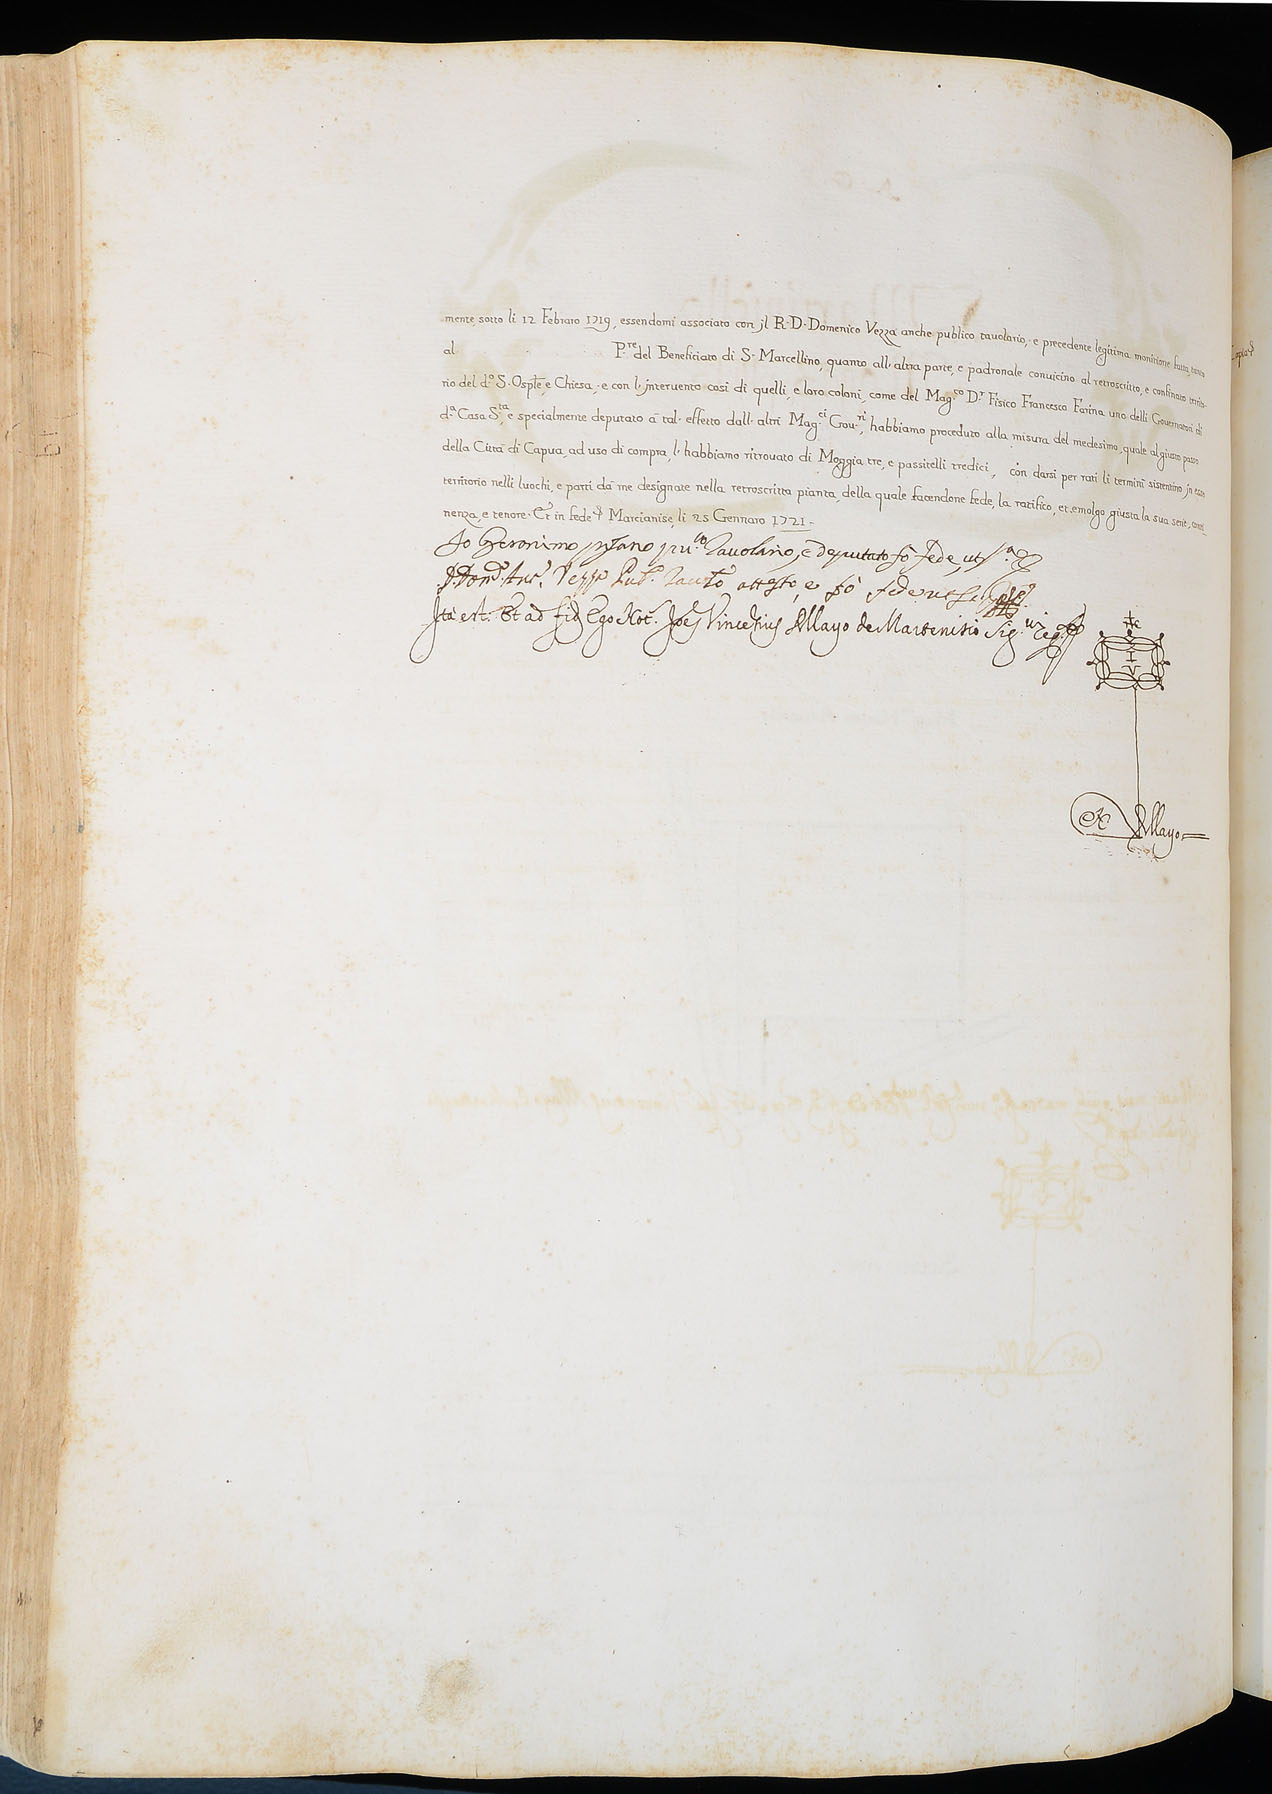 mente, sotto li 12 Febraro 1719, essendomi associato con jl R. D. Domenico Vezza anche publico tauolario, e precedente legitima monitione fatta, tanto
al P.re del Beneficiato di S. Marcellino, quanto all' altra parte, e padronale conuicino al retroscritto, e confinato territo-
rio del d.o S. Osp.le, e Chiesa, e con l' jnteruento cosi di quelli, e loro coloni, come del Mag.co D.r Fisico Francesco Farina uno delli Gouernatori di
d.a Casa S.ta, e specialmente deputato à tal' effetto dall' altri Mag.ci Gou.ri, habbiamo proceduto alla misura del medesimo, quale al giusto passo
della Città di Capua, ad uso di compra, l' habbiamo ritrouato di Moggia tre, e passitelli tredici, con darsi per rati li termini sistentino jn esso
territorio nelli luochi, e parti dà me designate nella retroscritta pianta, della quale facendone fede, la ratifico, et emolgo giusta la sua serie, conti-
nenza, e tenore. Et in fede Marcianise, li 25 Gennaro 1721 -
Io Geronimo pu.co Tauolario, e deputato fò fede, ut s.a
D. Dom.co Ant.o Vezza Pub.o attesto, e fò fede ut s.a
Ita est. Et ad fid. Ego Not. Joēs Vincētius Mayo de Martenisio sig.ui reg.
I V
Mayo